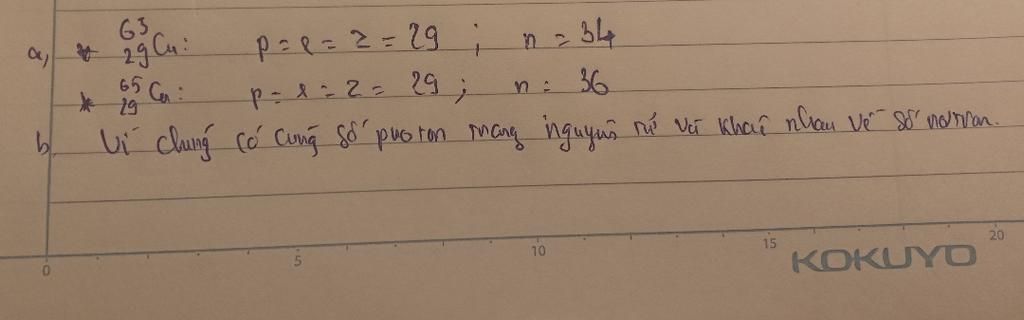 a, * ⁶³₂₉Cu: p = e = z = 29 ; n = 34
* ⁶⁵₂₉Cu: p = e = z = 29 ; n = 36
b, Vì chúng có cùng số proton trong nguyên tử và khác nhau về số nơtron.
0 5 10 15 20
KOKUYO